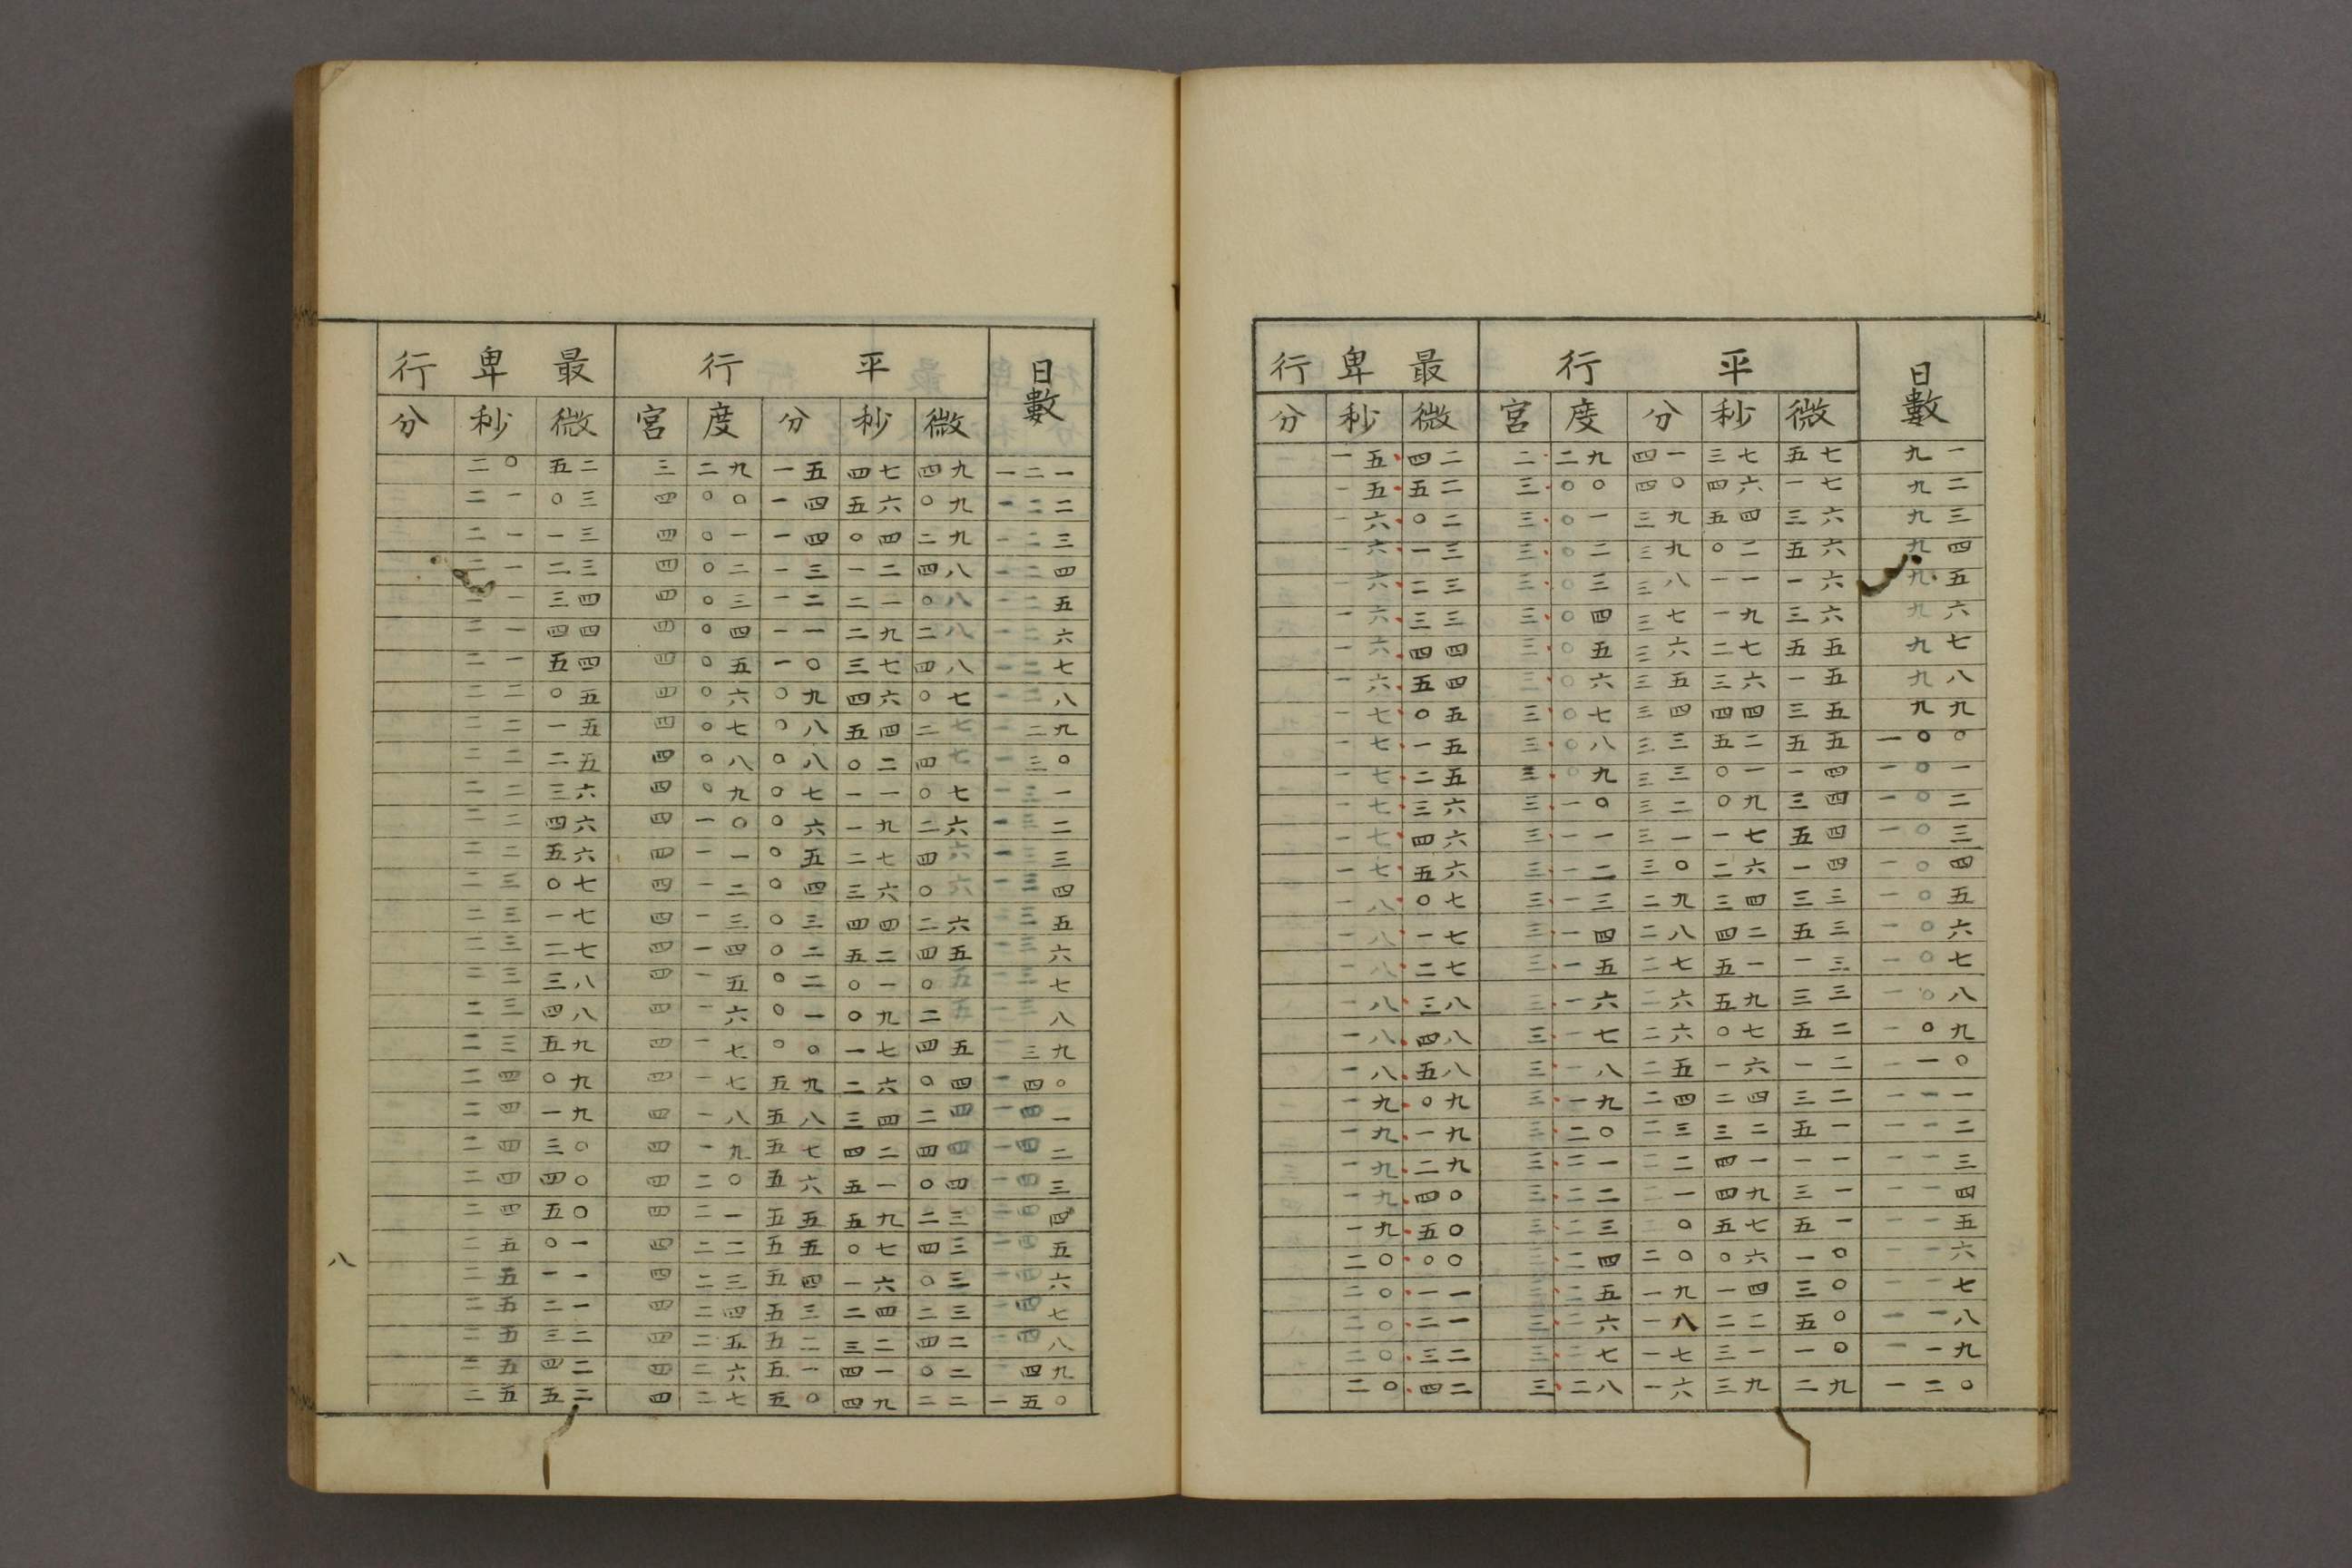 日數 平行 最卑行
微 秒 分 度 宮 微 秒 分
九一 五七 三七 四一 二九 二 四二 一五
九二 一七 四六 四〇 〇〇 三 五二 一五
九三 三六 五四 三九 〇一 三 〇二 一六
九四 五六 〇二 三九 〇二 三 一三 一六
九五 一六 一一 三八 〇三 三 二三 一六
九六 三六 一九 三七 〇四 三 三三 一六
九七 五五 二七 三六 〇五 三 四四 一六
九八 一五 三六 三五 〇六 三 五四 一六
九九 三五 四四 三四 〇七 三 〇五 一七
一〇〇 五五 五二 三三 〇八 三 一五 一七
一〇一 一四 〇一 三三 〇九 三 二五 一七
一〇二 三四 〇九 三二 一〇 三 三六 一七
一〇三 五四 一七 三一 一一 三 四六 一七
一〇四 一四 二六 三〇 一二 三 五六 一七
一〇五 三三 三四 二九 一三 三 〇七 一八
一〇六 五三 四二 二八 一四 三 一七 一八
一〇七 一三 五一 二七 一五 三 二七 一八
一〇八 三三 五九 二六 一六 三 三八 一八
一〇九 五二 〇七 二六 一七 三 四八 一八
一一〇 一二 一六 二五 一八 三 五八 一八
一一一 三二 二四 二四 一九 三 〇九 一九
一一二 五一 三二 二三 二〇 三 一九 一九
一一三 一一 四一 二二 二一 三 二九 一九
一一四 三一 四九 二一 二二 三 四〇 一九
一一五 五一 五七 二〇 二三 三 五〇 一九
一一六 一〇 〇六 二〇 二四 三 〇〇 二〇
一一七 三〇 一四 一九 二五 三 一一 二〇
一一八 五〇 二二 一八 二六 三 二一 二〇
一一九 一〇 三一 一七 二七 三 三二 二〇
一二〇 二九 三九 一六 二八 三 四二 二〇
日數 平行 最卑行
微 秒 分 度 宮 微 秒 分
一二一 四九 四七 一五 二九 三 五二 二〇
一二二 〇九 五六 一四 〇〇 四 〇三 二一
一二三 二九 〇四 一四 〇一 四 一三 二一
一二四 四八 一二 一三 〇二 四 二三 二一
一二五 〇八 二一 一二 〇三 四 三四 二一
一二六 二八 二九 一一 〇四 四 四四 二一
一二七 四八 三七 一〇 〇五 四 五四 二一
一二八 〇七 四六 〇九 〇六 四 〇五 二二
一二九 二七 五四 〇八 〇七 四 一五 二二
一三〇 四七 〇二 〇八 〇八 四 二五 二二
一三一 〇七 一一 〇七 〇九 四 三六 二二
一三二 二六 一九 〇六 一〇 四 四六 二二
一三三 四六 二七 〇五 一一 四 五六 二二
一三四 〇六 三六 〇四 一二 四 〇七 二三
一三五 二六 四四 〇三 一三 四 一七 二三
一三六 四五 五二 〇二 一四 四 二七 二三
一三七 〇五 〇一 〇二 一五 四 三八 二三
一三八 二五 〇九 〇一 一六 四 四八 二三
一三九 四五 一七 〇〇 一七 四 五九 二三
一四〇 〇四 二六 五九 一七 四 〇九 二四
一四一 二四 三四 五八 一八 四 一九 二四
一四二 四四 四二 五七 一九 四 三〇 二四
一四三 〇四 五一 五六 二〇 四 四〇 二四
一四四 二三 五九 五五 二一 四 五〇 二四
一四五 四三 〇七 五五 二二 四 〇一 二五
一四六 〇三 一六 五四 二三 四 一一 二五
一四七 二三 二四 五三 二四 四 二一 二五
一四八 四二 三二 五二 二五 四 三二 二五
一四九 〇二 四一 五一 二六 四 四二 二五
一五〇 二二 四九 五〇 二七 四 五二 二五
八